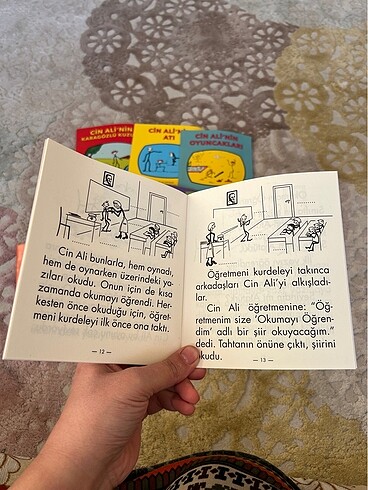 CİN ALİ'NİN
KARAGÖZLÜ KUZUSU
CİN ALİ'NİN
ATI
CİN ALİ'NİN
OYUNCAKLARI
Cin Ali bunlarla, hem oynadı,
hem de oynarken üzerindeki ya-
zıları okudu. Onun için de kısa
zamanda okumayı öğrendi. Her-
kesten önce okuduğu için, öğret-
meni kurdeleyi ilk önce ona taktı.
— 12 —
Öğretmeni kurdeleyi takınca
arkadaşları Cin Ali'yi alkışladı-
lar.
Cin Ali öğretmenine: "Öğ-
retmenim size 'Okumayı Öğren-
dim' adlı bir şiir okuyacağım."
dedi. Tahtanın önüne çıktı, şiirini
okudu.
— 13 —